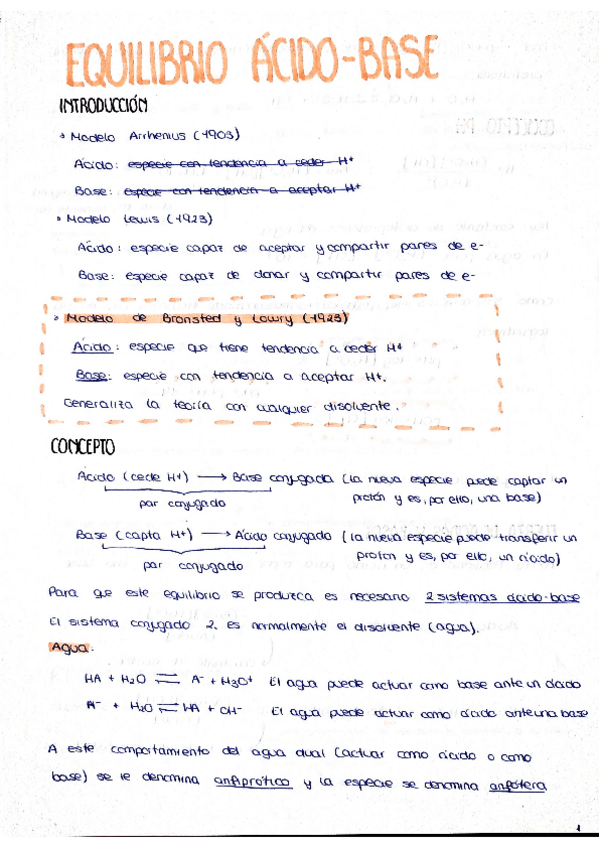 EQUILIBRIO ÁCIDO-BASE
INTRODUCCIÓN
> Modelo Arrhenius (1903)
Ácido: especie con tendencia a ceder H+
Base: especie con tendencia a aceptar H+
• Modelo Lewis (1923)
Ácido: especie capaz de aceptar y compartir pares de e-
Base: especie capaz de donar y compartir pares de e-
> Modelo de Bronsted y Lowry (1923)
Ácido: especie que tiene tendencia a ceder H+
Base: especie con tendencia a aceptar H+.
Generaliza la teoría con cualquier disolvente.
CONCEPTO
Ácido (cede H+) → Base conjugada (la nueva especie puede captar un
par conjugado protón y es, por ello, una base)
Base (capta H+) → Ácido conjugado (la nueva especie puede transferir un
par conjugado protón y es, por ello, un ácido)
Para que este equilibrio se produzca es necesario 2 sistemas ácido-base
El sistema conjugado 2, es normalmente el disolvente (agua).
Agua:
HA + H2O ⇌ A- + H3O+ El agua puede actuar como base ante un ácido
A- + H2O ⇌ HA + OH- El agua puede actuar como ácido ante una base
A este comportamiento del agua dual (actuar como ácido o como
base) se le denomina anfiprótico y la especie se denomina anfótera
1